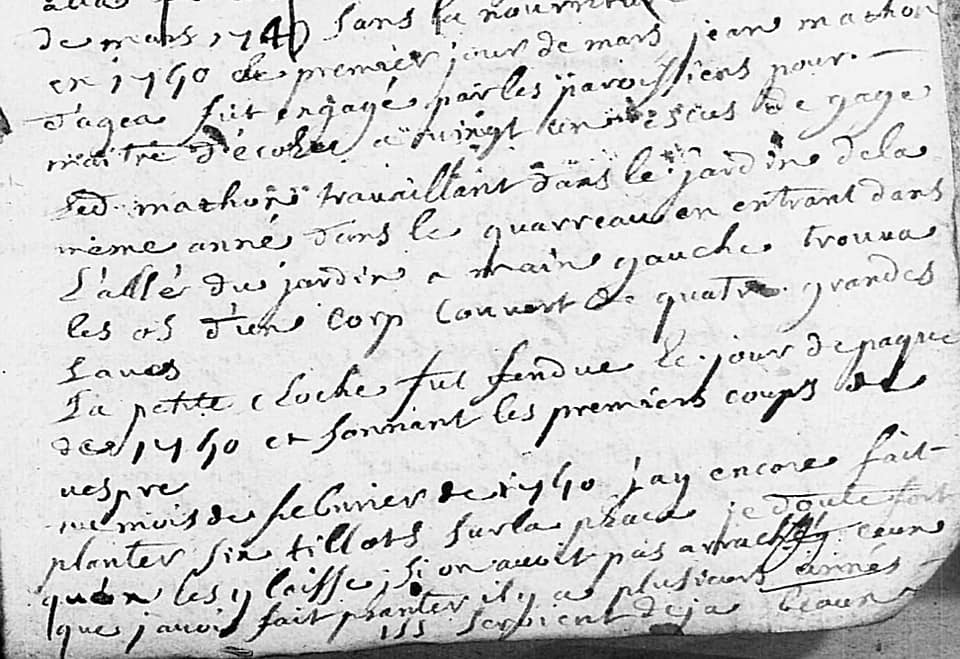 de mars 174 sans la nourriture
en 1750 le premier jour de mars jean mathon
d'agea fut engagé par les paroissiens pour
maitre d'écolle a vingt un escus de gage
led. mathon travaillant dans le jardin de la
meme anné dans le quarreau en entrant dans
l'allée du jardin a main gauche trouva
les os d'un corp couvert de quatre grandes
laves
La petite cloche fut fendue le jour de paque
de 1750 et sonnant les premiers coups de
vespre
au mois de febvrier de 1750 j'ay encore fait
planter six tillots sur la place je doute fort
qu'on les y laisse, si on avoit pas arraché ceux
que j'avois fait planter il y a plusieurs annés
ils seroient deja beaux